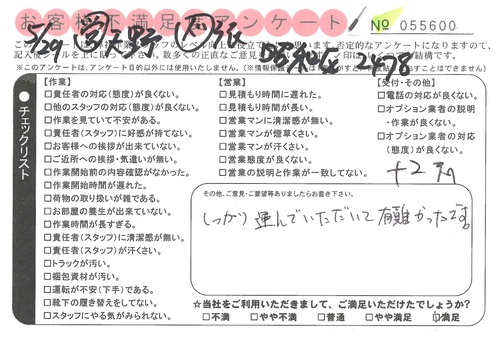 お客様不満足度アンケート
№ 055600
5/29
昭和区
※このアンケートは、アンケート目的以外には使用いたしません。
チェックリスト
【作業】
□責任者の対応(態度)が良くない。
□他のスタッフの対応(態度)が良くない。
□作業を見ていて不安がある。
□責任者(スタッフ)に好感が持てない。
□お客様への挨拶が出来ていない。
□ご近所への挨拶・気遣いが無い。
□作業開始前の内容確認がなかった。
□作業開始時間が遅れた。
□荷物の取り扱いが雑である。
□お部屋の養生が出来ていない。
□作業時間が長すぎる。
□責任者(スタッフ)に清潔感が無い。
□責任者(スタッフ)が汗くさい。
□トラックが汚い。
□梱包資材が汚い。
□運転が不安(下手)である。
□靴下の履き替えをしてない。
□スタッフにやる気がみられない。
【営業】
□見積もり時間に遅れた。
□見積もり時間が長い。
□営業マンに清潔感が無い。
□営業マンが煙草くさい。
□営業マンが汗くさい。
□営業態度が良くない。
□営業の説明と作業が一致してない。
【受付・その他】
□電話の対応が良くない。
□オプション業者の説明
・作業が良くない。
□オプション業者の対応
(態度)が良くない。
その他、ご意見・ご要望等ありましたらお書き下さい。
しっかり運んでいただいて有難かったです。
☆当社をご利用いただきまして、ご満足いただけたでしょうか?
□不満 □やや不満 □普通 □やや満足 □満足